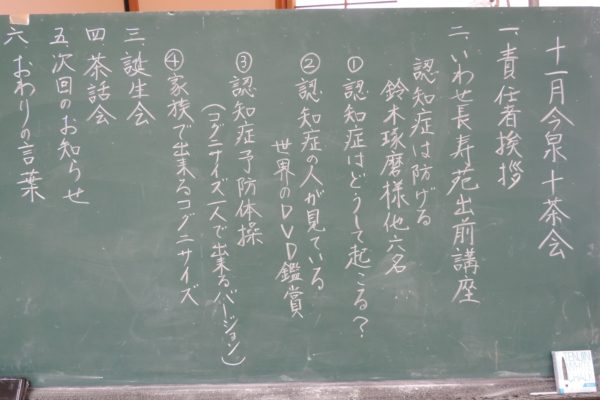 十一月今泉十茶会
一、責任者挨拶
二、いわせ長寿苑出前講座
認知症は防げる
鈴木琢磨様他六名
①認知症はどうして起こる?
②認知症の人が見ている
世界のDVD鑑賞
③認知症予防体操
(コグニサイズ一人で出来るバージョン)
④家族で出来るコグニサイズ
三、誕生会
四 茶話会
五、次回のお知らせ
六 おわりの言葉